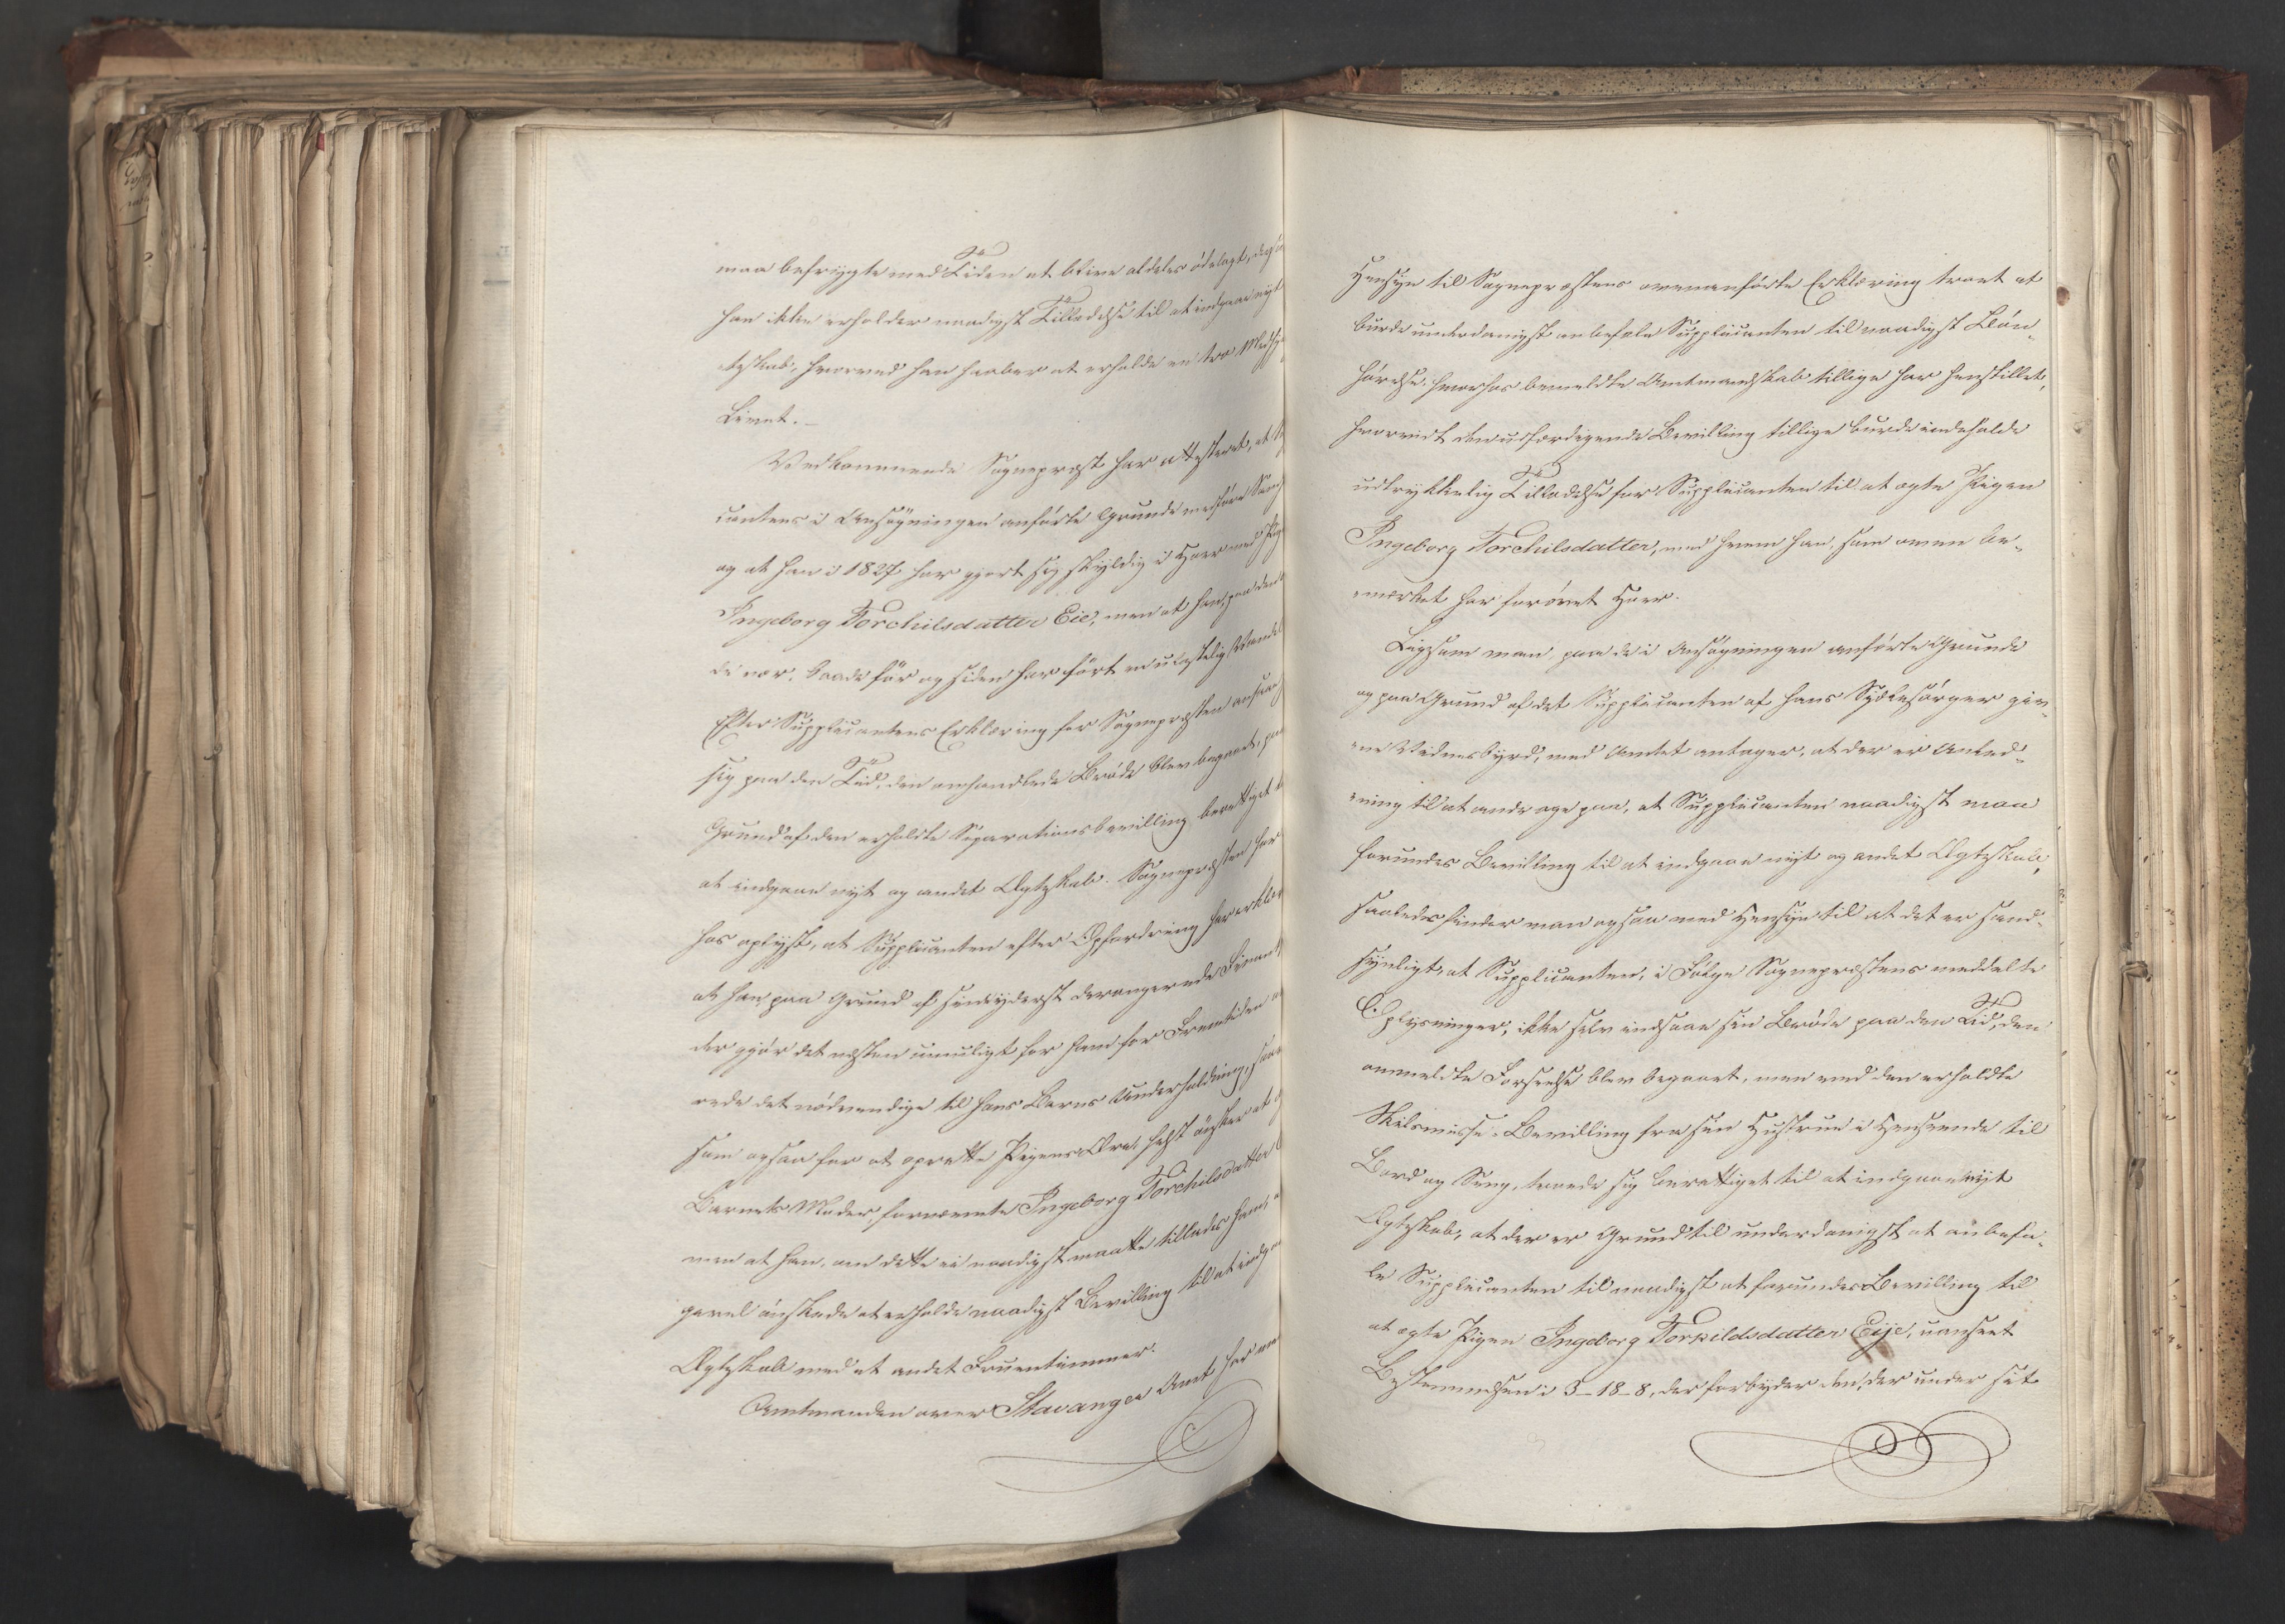 maa befrygte med Tiden at blive aldeles ødelagt, ifald
han ikke erholder naadigst Tilladelse til at indgaae nyt
tgskab, hvorved han haaber at erholde en tro Medhj
Livet. –
Vedkommende Sognepræst har attesteret, at
cantens i Ansøgningen anførte Grunde medføre Sand
og at han i 1827 har gjort sig skyldig i Hoer med Pig
Ingeborg Torchilsdatter Eie, men at han, paa den
de nær, baade før og siden har ført en ulastelig Vandel
Efter Supplicantens Erklæring for Sognepræsten ansaae
sig paa den Tid, den omhandlede Brøde blev begaaet, paa
Grund af den erholdte Separationsbevilling, berettiget
at indgaae nyt og andet Ægteskab. Sognepræsten har
hos oplyst, at Supplicanten efter Opfordring har erklæ
at han paa Grund af sin yderst derangerede Finants
der gjør det næsten umuligt for ham for Fremtiden at
rede det nødvendige til hans Barns Underholdning, saa
som ogsaa for at oprette Pigens Ære, helst ønsker at
Barnets Moder, fornævnte Ingeborg Torchilsdatter
men at han, om dette ei naadigst maatte tillades ham,
gevel ønskede at erholde naadigst Bevilling til at indg
Ægteskab med et andet Fruentimmer.
Amtmanden over Stavanger Amt har
Hensyn til Sognepræstens ovenanførte Erklæring troet at
burde underdanigst anbefale Supplicanten til naadigst Bøn¬
hørelse, hvorhos bemeldte Amtmandskab tillige har henstillet,
hvorvidt den udfærdigende Bevilling tillige burde indeholde
udtrykkelig Tilladelse for Supplicanten til at ægte Pigen
Ingeborg Torchilsdatter, med hvem han, som oven be¬
mærket har forøvet Hoer.
Ligesom man, paa de i Ansøgningen anførte Grunde
og paa Grund af det Supplicanten af hans Sjælesørger giv¬
ne Vidnesbyrd, med Amtet antager, at der er Anled¬
ning til at andrage paa, at Supplicanten naadigst maa
forundes Bevilling til at indgaae nyt og andet Ægteskab,
saaledes finder man ogsaa med Hensyn til at det er sand¬
synligt, at Supplicanten, i Følge Sognepræstens meddelte
Oplysninger, ikke selv indsaae sin Brøde paa den Tid, den
ommeldte Forseelse blev begaaet, men ved den erholdte
Skilsmisse-Bevilling fra sin Hustrue i Henseende til
Bord og Seng, troede sig berettiget til at indgaae nyt
Ægteskab, at der er Grund til underdanigst at anbefa¬
le Supplicanten til naadigst at forundes Bevilling til
at ægte Pigen Ingeborg Torkildsdatter Eije, uanseet
Bestemmelsen i 3–18–8, der forbyder den, der under sit